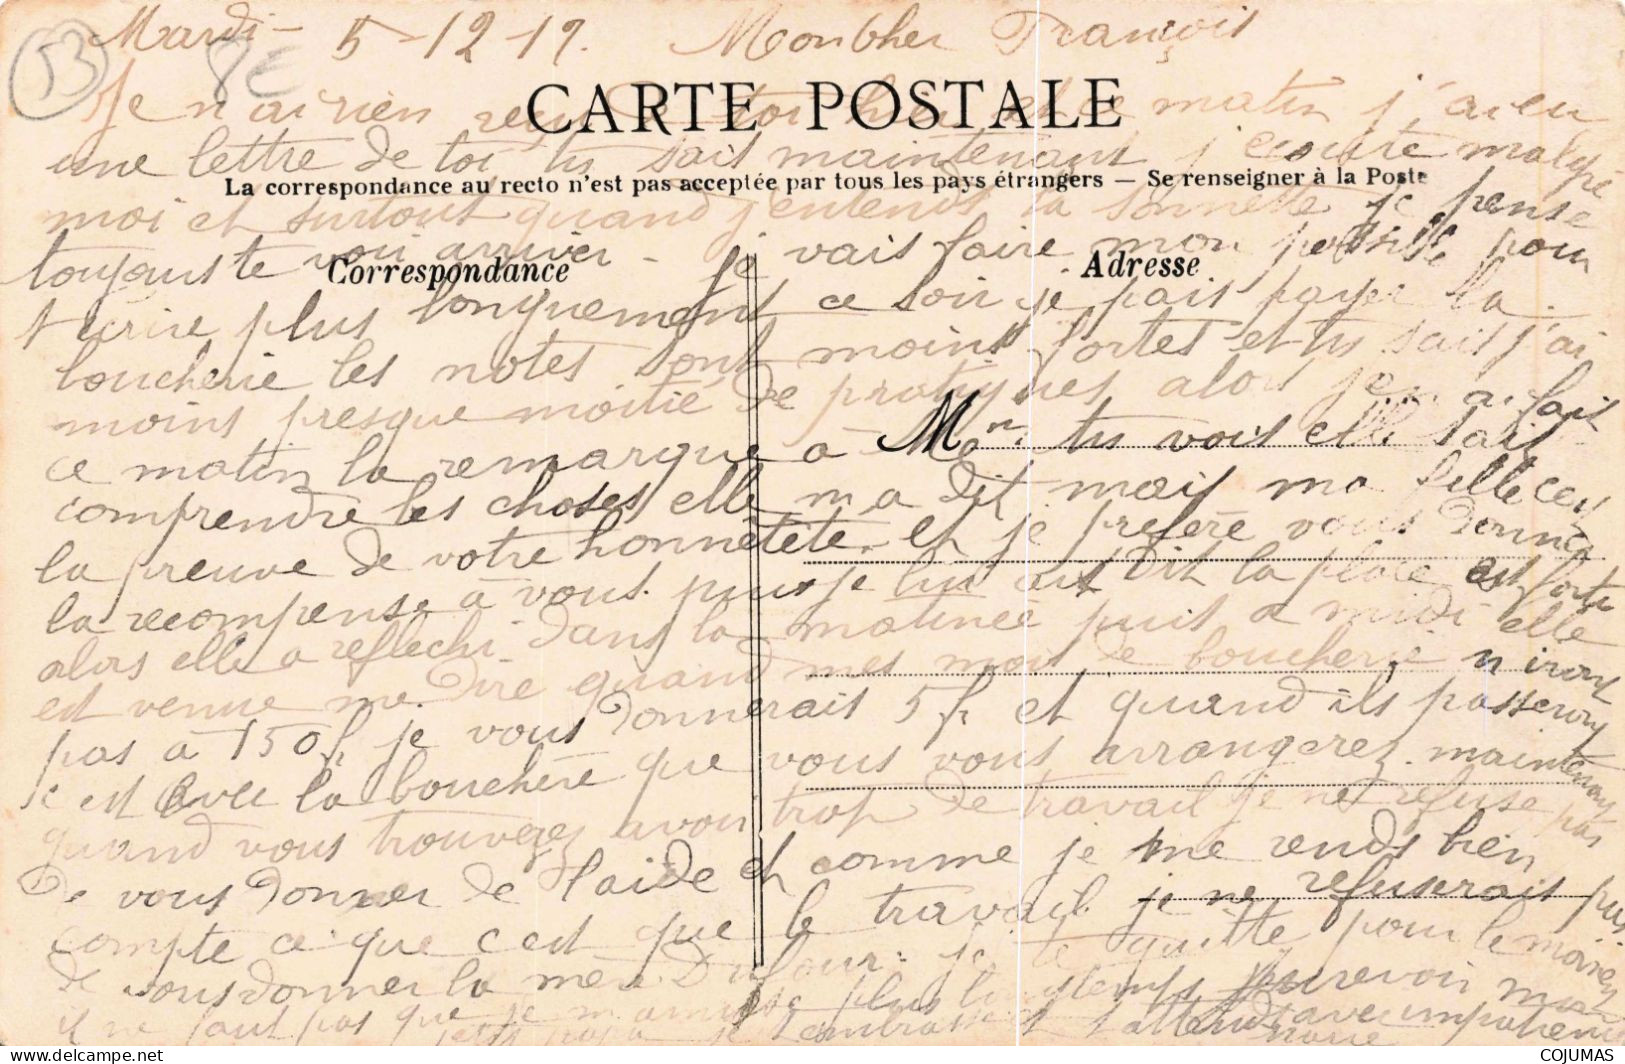 53
8€
Mardi - 5-12-17. Mon cher François
CARTE POSTALE
Je n'ai rien reçu de toi hier et ce matin j'ai eu
une lettre de toi tu sait maintenant j'ecoute malgré
La correspondance au recto n'est pas acceptée par tous les pays étrangers — Se renseigner à la Poste
moi et surtout quand j'entends la sonnette je pense
toujours te voir arriver - je vais faire mon possible pour
Correspondance
Adresse
t'ecrire plus longuement ce soir je vais payer la
boucherie les notes sont moins fortes et tu sait j'ai
moins presque moitié de pratiques alors j'en ai fait
ce matin la remarque a Mon. tu vois elle sait
comprendre les choses elle m'a dit mais ma fille ceci
la preuve de votre honnêtête. et je prefere vous donner
la recompense à vous. puis je lui ait dit la place est forte
alors elle a reflechi dans la matinée puis a midi elle
est venue me dire quand mes mois de boucherie n'iront
pas a 150f je vous donnerais 5f. et quand ils passeront
c'est avec la bouchère que vous vous arrangerez. maintenant
quand vous trouverez avoir trop de travail je ne refuse pas
de vous donner de l'aide et comme je me rends bien
compte ce que c'est que le travail. je ne refuserais pas
de vous donner la mère Dufour. je te quitte pour le moment
il ne faut pas que je m'amuse plus longtemps
papa t'embrasse et t'attend avec impatience
COJUMAS